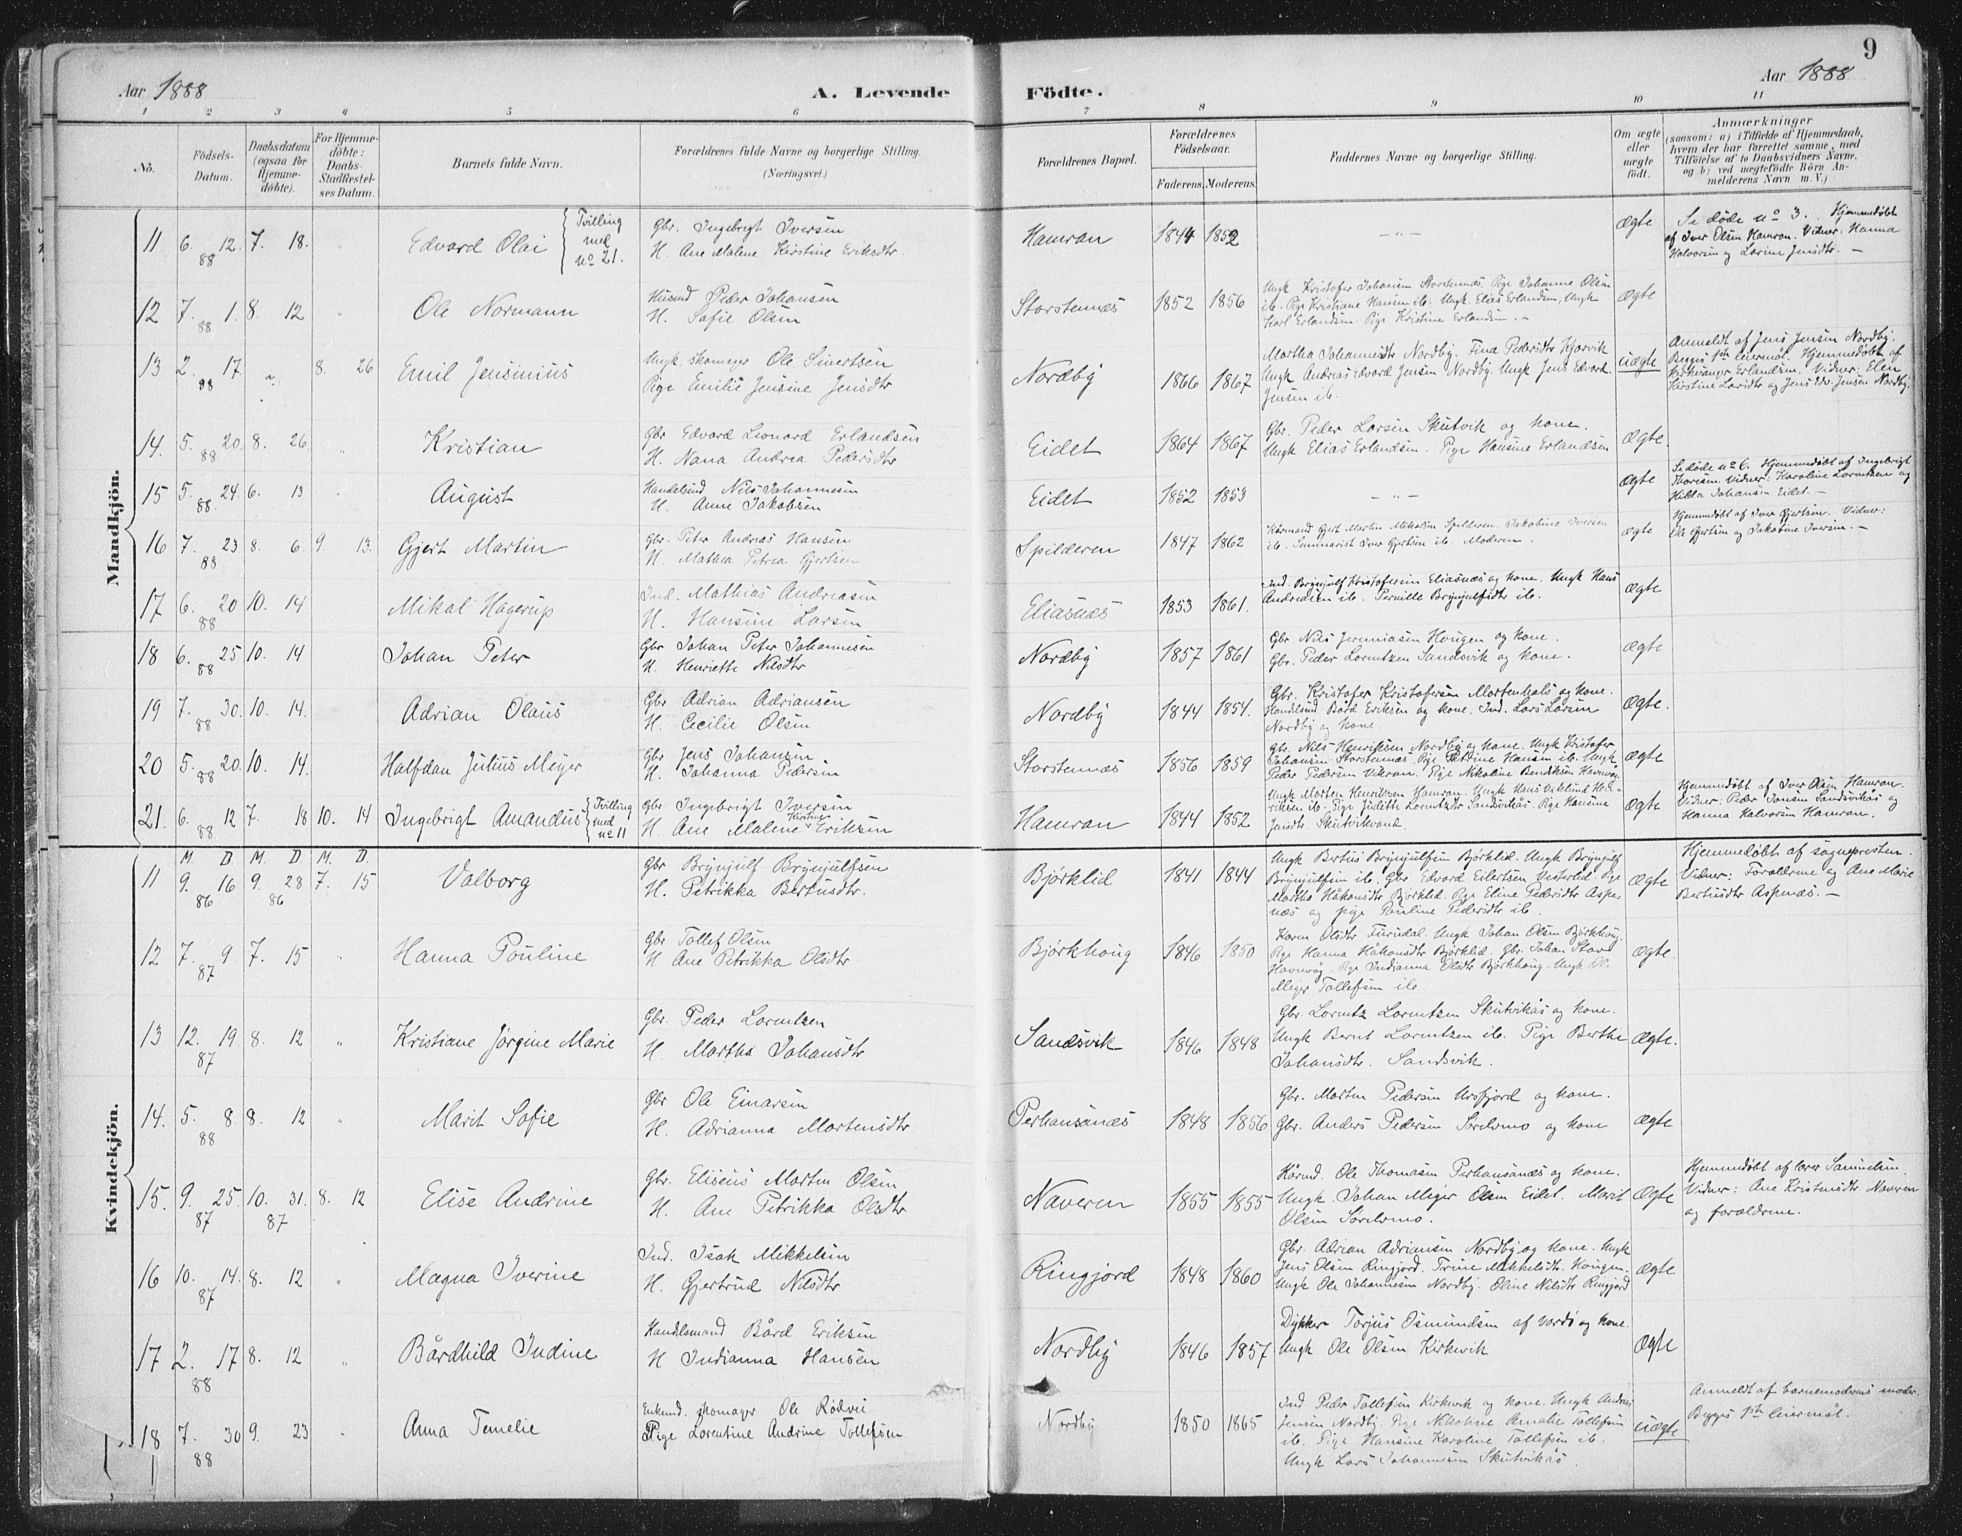 9
Aar 1888
A. Levende Födte.
Aar 1888
1 2 3 4 5 6 7 8 9 10 11
No.
Födsels-Datum.
Daabsdatum (ogsaa for Hjemmedöbte).
For Hjemmedöbte: Daabs-Stadfæstelses Datum.
Barnets fulde Navn.
Forældrenes fulde Navne og borgerlige Stilling. (Næringsvei.)
Forældrenes Bopæl.
Forældrenes Födselsaar.
Faderens. Moderens.
Faddernes Navne og borgerlige Stilling.
Om ægte eller uægte födt.
Anmærkninger
(saasom: a) i Tilfælde af Hjemmedaab, hvem der har forrettet samme, med Tilföielse af to Daabsvidners Navne, og b) ved uægtefödte Börn Anmelderens Navn m. V.)
Mandkjön.
11 6. 12. 88 7. 18. Edvard Olai {Tvilling med No 21. Gbr. Ingebrigt Iversen H. Ane Malene Kirstine Eriksdtr Hamran 1844 1852 - " - Ægte Se døde No 3. Hjemmedøbt af Iver Olsen Hamran. Vidner: Hanna Halvorsen og Lorine Jensdtr. -
12 7. 1. 88 8. 12 " Ole Normann Husmd Peder Johansen H. Sofie Olsen Storstennæs 1852 1856 Ungk Kristofer Johansen Storstennæs. Pige Johanne Olsen ib. Pige Kristiane Hansen ib. Ungk. Elias Erlandsen, Ungk Karl Erlandsen. Pige Kristine Erlandsen. - Ægte
13 2. 17. 88 " 8. 26 Emil Jensinius Ungk. skomager Ole Sivertsen Pige Emilie Jensine Jensdtr Nordby 1866 1867 Martha Johannesdtr Nordby. Fina Pedersdtr Kjorvik Ungk Andreas Edvard Jensen Nordby. Ungk Jens Edvard Jensen ib. uægte Anmeldt af Jens Jensen Nordby. Begges 1ste leiermål. Hjemmedøbt af Kirkesanger Erlandsen. Vidner: Elen Kirstine Larsdtr og Jens Edv. Jensen Nordby.
14. 5. 20. 88 8. 26 " Kristian Gbr Edvard Leonard Erlandsen H. Nana Andrea Pedersdtr Eidet 1864 1867 Gbr. Peder Larsen Skutvik og kone. Ungk Elias Erlandsen. Pige Hansine Erlandsen Ægte.
15 5. 24 88. 6. 13 " August Handelsmd Nils Johannesen H. Anne Jakobsen Eidet 1852 1853 - " - Ægte Se døde No 6. Hjemmedøbt af Ingebrigt Thoresen. Vidner: Karoline Lorentzen og Hilda Johansen Eidet. -
16 7. 23 88 8. 6. 9. 13. Gjert Martin Gbr. Peter Andreas Hansen H. Mathea Petrea Gjertsen Spilderen 1847 1862 Kårmand Gjert Martin Mikalsen Spilderen. Jakobine Iversen ib. Seminarist Iver Gjertsen ib. Moderen. Ægte Hjemmedøbt af Iver Gjertsen. Vidner: Ole Gjertsen og Jakobine Iversen. -
17 6. 20 88 10. 14 Mikal Hagerup Ind. Mathias Andreasen H. Hansine Larsen Eliasnæs 1853 1861. Ind. Brynjulf Kristofersen Eliasnæs og kone. Ungk Hans Andreasen ib. Pernille Brynjulfsdtr ib. Ægte
18 6. 25 88 10. 14 Johan Peter Gbr Johan Peter Johannesen H. Henriette Nilsdtr Nordby 1857 1861 Gbr Nils Jeremiasen Hougen og kone. Gbr. Peder Lorentzen Sandsvik og kone. Ægte
19 7. 30. 88 10. 14. Adrian Olaus Gbr. Adrian Adriansen H. Cecilie Olsen Nordby 1844 1854. Gbr. Kristofer Kristofersen Mortenhals og kone. Handelsmd Bård Eriksen og kone. Ind. Lars Larsen Nordby og kone. Ægte.
20 5. 20. 88 10. 14. Halfdan Julius Meyer Gbr Jens Johansen H. Johanna Pedersen Storstennæs 1856 1859 Gbr. Nils Henriksen Nordby og kone. Ungk Kristofer Johansen Storstennæs. Pige Pettine Hansen ib. Ungk Peder Pedersen Vikran. Pige Nikoline Bendiksen Havnvåg. Ægte
21. 6. 12 88 7. 18 10. 14 Ingebrigt Amandus {Tvilling med No 11 Gbr Ingebrigt Iversen H. Ane Malene Kirstine Eriksen Hamran 1844 1852 Ungk Morten Henriksen Hamran. Ungk Hans Henriksen ib. Pige Judith Lorentzdtr Sandsvikås. Pige Hansine Jensdtr Skutvikvand. Ægte Hjemmedøbt af Iver Olsen Hamran. Vidner: Peder Jonsen Sandsvikås og Hanna Halvorsen Hamran.
Kvindekjön.
M. D. M. D. M. D.
11 9. 16 86 9. 28 86 7. 15 Valborg Gbr Brynjulf Brynjulfsen H. Petrikka Bertusdtr. Bjørklid 1841 1844 Ungk Bertus Brynjulfsen Bjørklid. Ungk Brynjulf Brynjulfsen ib. Gbr Edvard Eilertsen Vesterlid. Pige Martha Håkonsdtr Bjørklid. Pige Eline Pedersdtr Aspenæs og pige Pauline Pedersdtr ib. Ægte Hjemmedøbt af sognepresten. Vidner: Forældrene og Ane Marie Bertusdtr Aspenæs. -
12 7. 9. 87 7. 15 " Hanna Pouline Gbr Tollef Olsen H Ane Petrikka Olsdtr Bjørkhoug 1846 1850 Karen Olsdtr Furudal. Ungk Johan Olsen Bjørkhoug. Pige Hanna Håkonsdtr Bjørklid. Gbr. Johan Stard Havnvåg. Pige Indianna Olsdtr Bjørkhoug. Ungk Ole Meyer Tollefsen ib. Ægte.
13 12. 19. 87 8. 12 " Kristiane Jørgine Marie Gbr. Peder Lorentzen H. Martha Johansdtr Sandsvik 1846 1848 Gbr Lorentz Lorentzen Skutvikås og kone. Ungk Bernt Lorentzen ib. Pige Berthe Johansdtr. Sandsvik. Ægte.
14. 5. 8. 88 8. 12 " Marit Sofie Gbr Ole Einarsen H. Adrianna Mortensdtr Perhansanæs 1848 1856 Gbr. Morten Pedersen Ursfjord og kone. Gbr. Anders Pedersen Sørelvmo og kone Ægte
15. 9. 25 87 10. 31. 87 8. 12 Elise Andrine Gbr. Eliseus Morten Olsen H. Ane Petrikka Olsdtr Naveren 1855 1855 Kårmd. Ole Thomasen Perhansanæs og kone. Ungk. Johan Meyer Olsen Eidet. Marit Olsen Sørelvmo. Ægte Hjemmedøbt af lærer Samuelsen. Vidner: Ane Kristensdtr Naveren og forældrene.
16 10. 14. 87 8. 12 " Magna Iverine Ind. Isak Mikkelsen H. Gjertrud Nilsdtr Ringjord 1848 1860 Gbr. Adrian Adriansen Nordby og kone. Ungk Jens Olsen Ringjord. Trine Mikkelsdtr. Hougen. Ungk Ole Johannesen Nordby. Oline Nilsdtr Ringjord Ægte
17 2. 17 88 8. 12 " Bårdhild Indine Handelsmand Bård Eriksen H Indianna Hansen Nordby 1846 1857 Dykker Torjus Osmundsen af Vardø og kone. Ungk Ole Olsen Kirkevik Ægte
18 7. 30 88 9. 23 Anna Temelie Enkemd. skomager Ole Rødvei Pige Lorentine Andrine Tollefsen Nordby 1850 1865 Ind Peder Tollefsen Kirkevik og kone. Ungk Andreas Jensen Nordby. Pige Nikoline Amalie Tollefsen ib. Pige Hansine Karoline Tollefsen ib. Ungk Lars Johannesen Skutvikås. uægte Anmeldt af barnemoderens moder. Begges 1ste leiermål.